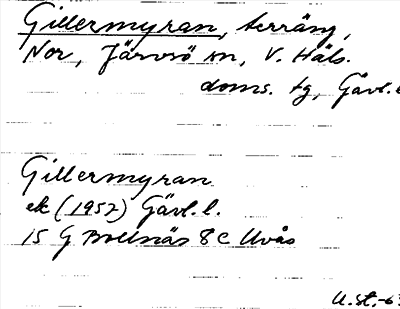 Gillermyran, terräng,
Nor, Järvsö sn, V. Häls.
doms. tg, Gävl. l
Gillermyran
ek (1952) Gävl. l.
15 G Bollnäs 8 c Uvås
U.st.-63